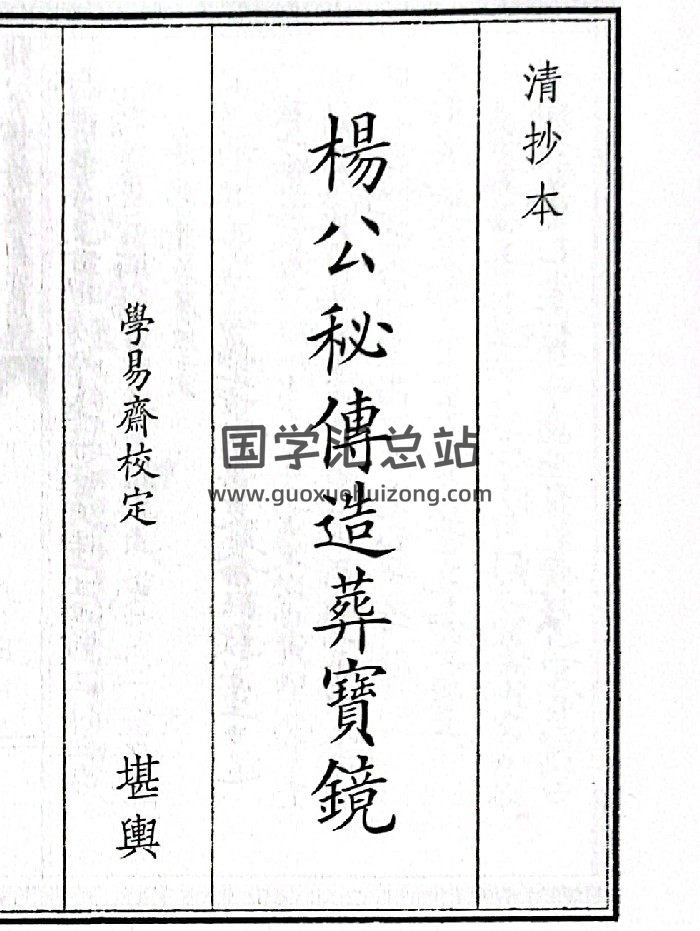 清抄本
楊公秘傳造葬寶鏡
學易齋校定
堪輿
国学汇总站
www.guoxuehuizong.com